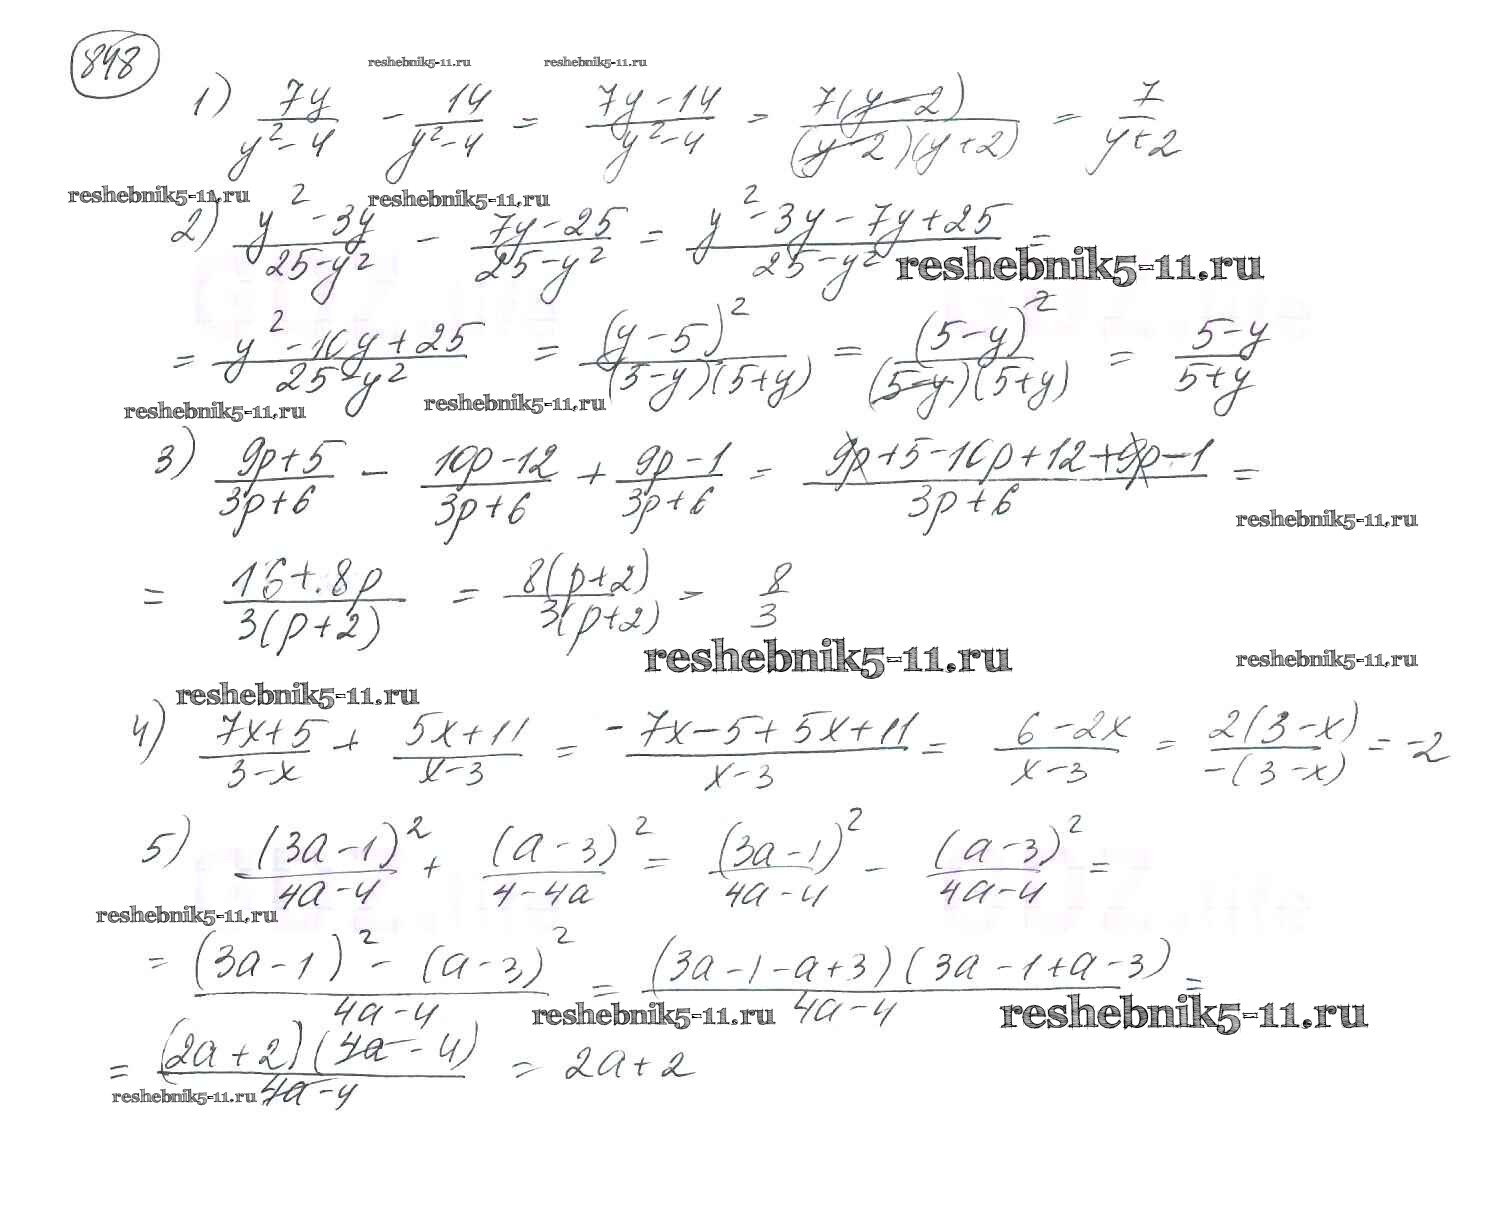 848
reshebnik5-11.ru reshebnik5-11.ru
1) 7y/(y²-4) - 14/(y²-4) = (7y-14)/(y²-4) = 7(y-2)/((y-2)(y+2)) = 7/(y+2)
reshebnik5-11.ru reshebnik5-11.ru
2) (y²-3y)/(25-y²) - (7y-25)/(25-y²) = (y²-3y-7y+25)/(25-y²) =
reshebnik5-11.ru
= (y²-10y+25)/(25-y²) = (y-5)²/((5-y)(5+y)) = (5-y)²/((5-y)(5+y)) = (5-y)/(5+y)
reshebnik5-11.ru reshebnik5-11.ru
3) (9p+5)/(3p+6) - (10p-12)/(3p+6) + (9p-1)/(3p+6) = (9p+5-10p+12+9p-1)/(3p+6) =
reshebnik5-11.ru
= (16+8p)/(3(p+2)) = 8(p+2)/(3(p+2)) - 8/3
reshebnik5-11.ru reshebnik5-11.ru
reshebnik5-11.ru
4) (7x+5)/(3-x) + (5x+11)/(x-3) = (-7x-5+5x+11)/(x-3) = (6-2x)/(x-3) = 2(3-x)/(-(3-x)) = -2
5) (3a-1)²/(4a-4) + (a-3)²/(4-4a) = (3a-1)²/(4a-4) - (a-3)²/(4a-4) =
reshebnik5-11.ru
= ((3a-1)²-(a-3)²)/(4a-4) = (3a-1-a+3)(3a-1+a-3)/(4a-4) =
reshebnik5-11.ru reshebnik5-11.ru
= (2a+2)(4a-4)/(4a-4) = 2a+2
reshebnik5-11.ru